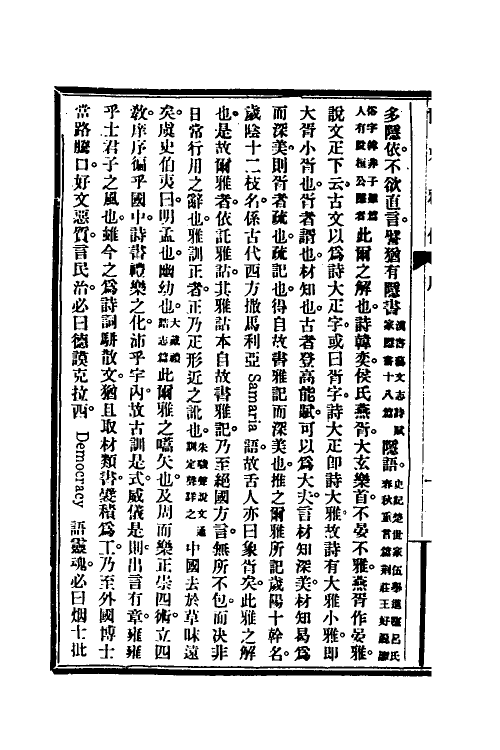 多隱依不欲直言譬猶有隱書漢書藝文志詩賦家隱書十八篇隱語史記楚世家伍舉進隱呂氏春秋重言篇荊莊王好讔讔
俗字韓非子難篇人有設桓公隱者此爾之解也詩韓奕侯氏燕胥大玄樂首不晏不雅燕胥作晏雅
說文疋下云古文以爲詩大疋字或曰胥字詩大疋卽詩大雅故詩有大雅小雅卽
大胥小胥也胥者謂也材知也古者登高能賦可以爲大夫言材知深美材知曷爲
而深美則胥者疏也疏記也得自故書雅記而深美也推之爾雅所記歲陽十幹名
歲陰十二枝名係古代西方撒馬利亞 Samaria 語故舌人亦曰象胥矣此雅之解
也是故爾雅者依託雅詁其雅詁本自故書雅記乃至絕國方言無所不包而決非
日常行用之辭也雅訓正者正乃疋形近之訛也朱駿聲說文通訓定聲詳之中國去於草昧遠
矣虞史伯夷曰明孟也幽幼也大戴禮誥志篇此爾雅之嚆矢也及周而樂正崇四術立四
敎庠序徧乎國中詩書禮樂之化沛乎宇內故古訓是式威儀是則出言有章雍雍
乎士君子之風也雖今之爲詩詞駢散文猶且取材類書襞積爲工乃至外國博士
當路騰口好文惡質言民治必曰德謨克拉西 Democracy 語靈魂必曰烟士批